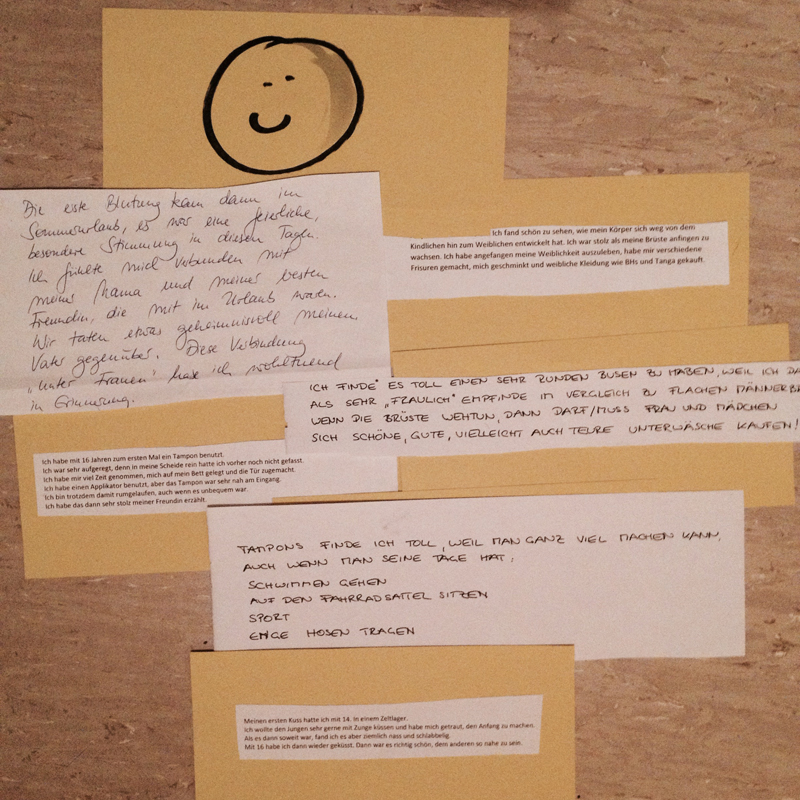 Die erste Blutung kam dann im
Sommerurlaub, es war eine feierliche,
besondere Stimmung in diesen Tagen.
Ich fühlte mich verbunden mit
meiner Mama und meiner besten
Freundin, die mit im Urlaub waren.
Wir taten etwas geheimnisvoll meinem
Vater gegenüber. Diese Verbindung
„unter Frauen" habe ich wohltuend
in Erinnerung.
Ich fand schön zu sehen, wie mein Körper sich weg von dem
Kindlichen hin zum Weiblichen entwickelt hat. Ich war stolz als meine Brüste anfingen zu
wachsen. Ich habe angefangen meine Weiblichkeit auszuleben, habe mir verschiedene
Frisuren gemacht, mich geschminkt und weibliche Kleidung wie BHs und Tanga gekauft.
ICH FINDE ES TOLL EINEN SEHR RUNDEN BUSEN ZU HABEN, WEIL ICH
ALS SEHR „FRAULICH" EMPFINDE IM VERGLEICH ZU FLACHEN
WENN DIE BRÜSTE WEHTUN, DANN DARF/MUSS FRAU UND MÄDCHEN
SICH SCHÖNE, GUTE, VIELLEICHT AUCH TEURE UNTERWÄSCHE KAUFEN!
Ich habe mit 16 Jahren zum ersten Mal ein Tampon benutzt.
Ich war sehr aufgeregt, denn in meine Scheide rein hatte ich vorher noch nicht gefasst.
Ich habe mir viel Zeit genommen, mich auf mein Bett gelegt und die Tür zugemacht.
Ich habe einen Applikator benutzt, aber das Tampon war sehr nah am Eingang.
Ich bin trotzdem damit rumgelaufen, auch wenn es unbequem war.
Ich habe das dann sehr stolz meiner Freundin erzählt.
TAMPONS FINDE ICH TOLL, WEIL MAN GANZ VIEL MACHEN KANN,
AUCH WENN MAN SEINE TAGE HAT:
SCHWIMMEN GEHEN
AUF DEN FAHRRADSATTEL SITZEN
SPORT
ENGE HOSEN TRAGEN
Meinen ersten Kuss hatte ich mit 14. In einem Zeltlager.
Ich wollte den Jungen sehr gerne mit Zunge küssen und habe mich getraut, den Anfang zu machen.
Als es dann soweit war, fand ich es aber ziemlich nass und schlabbelig.
Mit 16 habe ich dann wieder geküsst. Dann war es richtig schön, dem anderen so nahe zu sein.